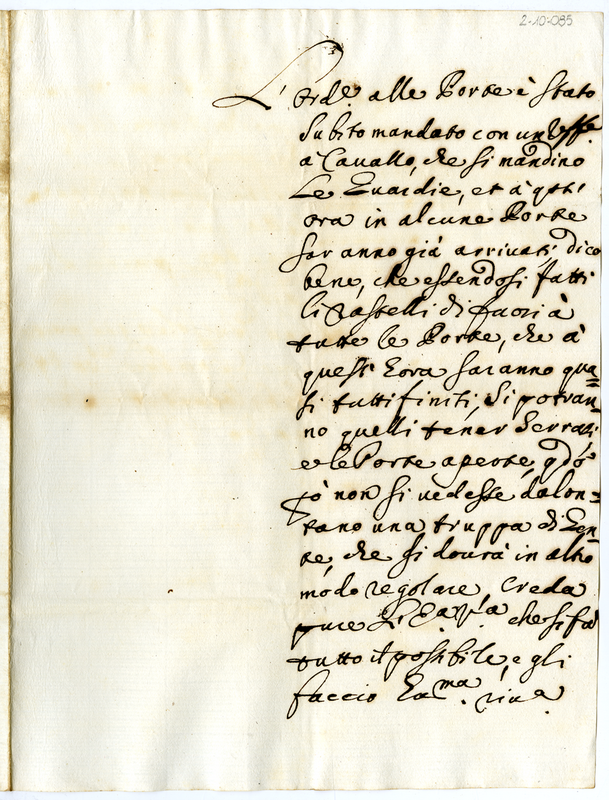 2-10-085
L'ord.e alle Porte è stato
subito mandato con un
à Cavallo, che si mandino
Le Guardie, et à qst'
ora in alcune Porte
saranno già arrivati, dico
bene, che essendosi fatti
li Rastelli di fuori à
tutte le Porte, che à
quest'hora saranno qua=
si tutti finiti, si potran=
no quelli tener serrati
e le Porte aperte, qdo
pò non si vedesse da lon=
tano una truppa di Gen=
te, che si dovrà in altro
modo regolare, Creda
pure che si fà
tutto il possibile, e gli
faccio riva